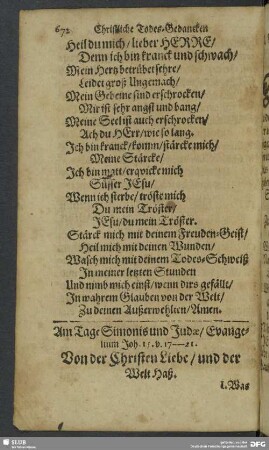 672 Christliche Todes-Gedancken
Heil du mich / lieber HERRE /
Denn ich bin kranck und schwach /
Mein Hertz betrübet sehre /
Leidet groß Ungemach /
Mein Gebeine sind erschrocken /
Mir ist sehr angst und bang /
Meine Seel ist auch erschrocken /
Ach du HErr / wie so lang.
Ich bin kranck / komm / stärcke mich /
Meine Stärcke /
Ich bin matt / erqvicke mich
Süsser JEsu /
Wenn ich sterbe / tröste mich
Du mein Tröster /
JEsu / du mein Tröster.
Stärck mich mit deinem Freuden-Geist /
Heil mich mit deinen Wunden /
Wasch mich mit deinem Todes-Schweiß
In meiner letzten Stunden
Und nimb mich einst / wenn dirs gefällt /
In wahrem Glauben von der Welt /
Zu deinen Außerwehlten / Amen.
Am Tage Simonis und Judæ / Evange-
lium Joh. 15. v. 17--21.
Von der Christen Liebe / und der
Welt Haß.
1. Was
SLUB
DFG